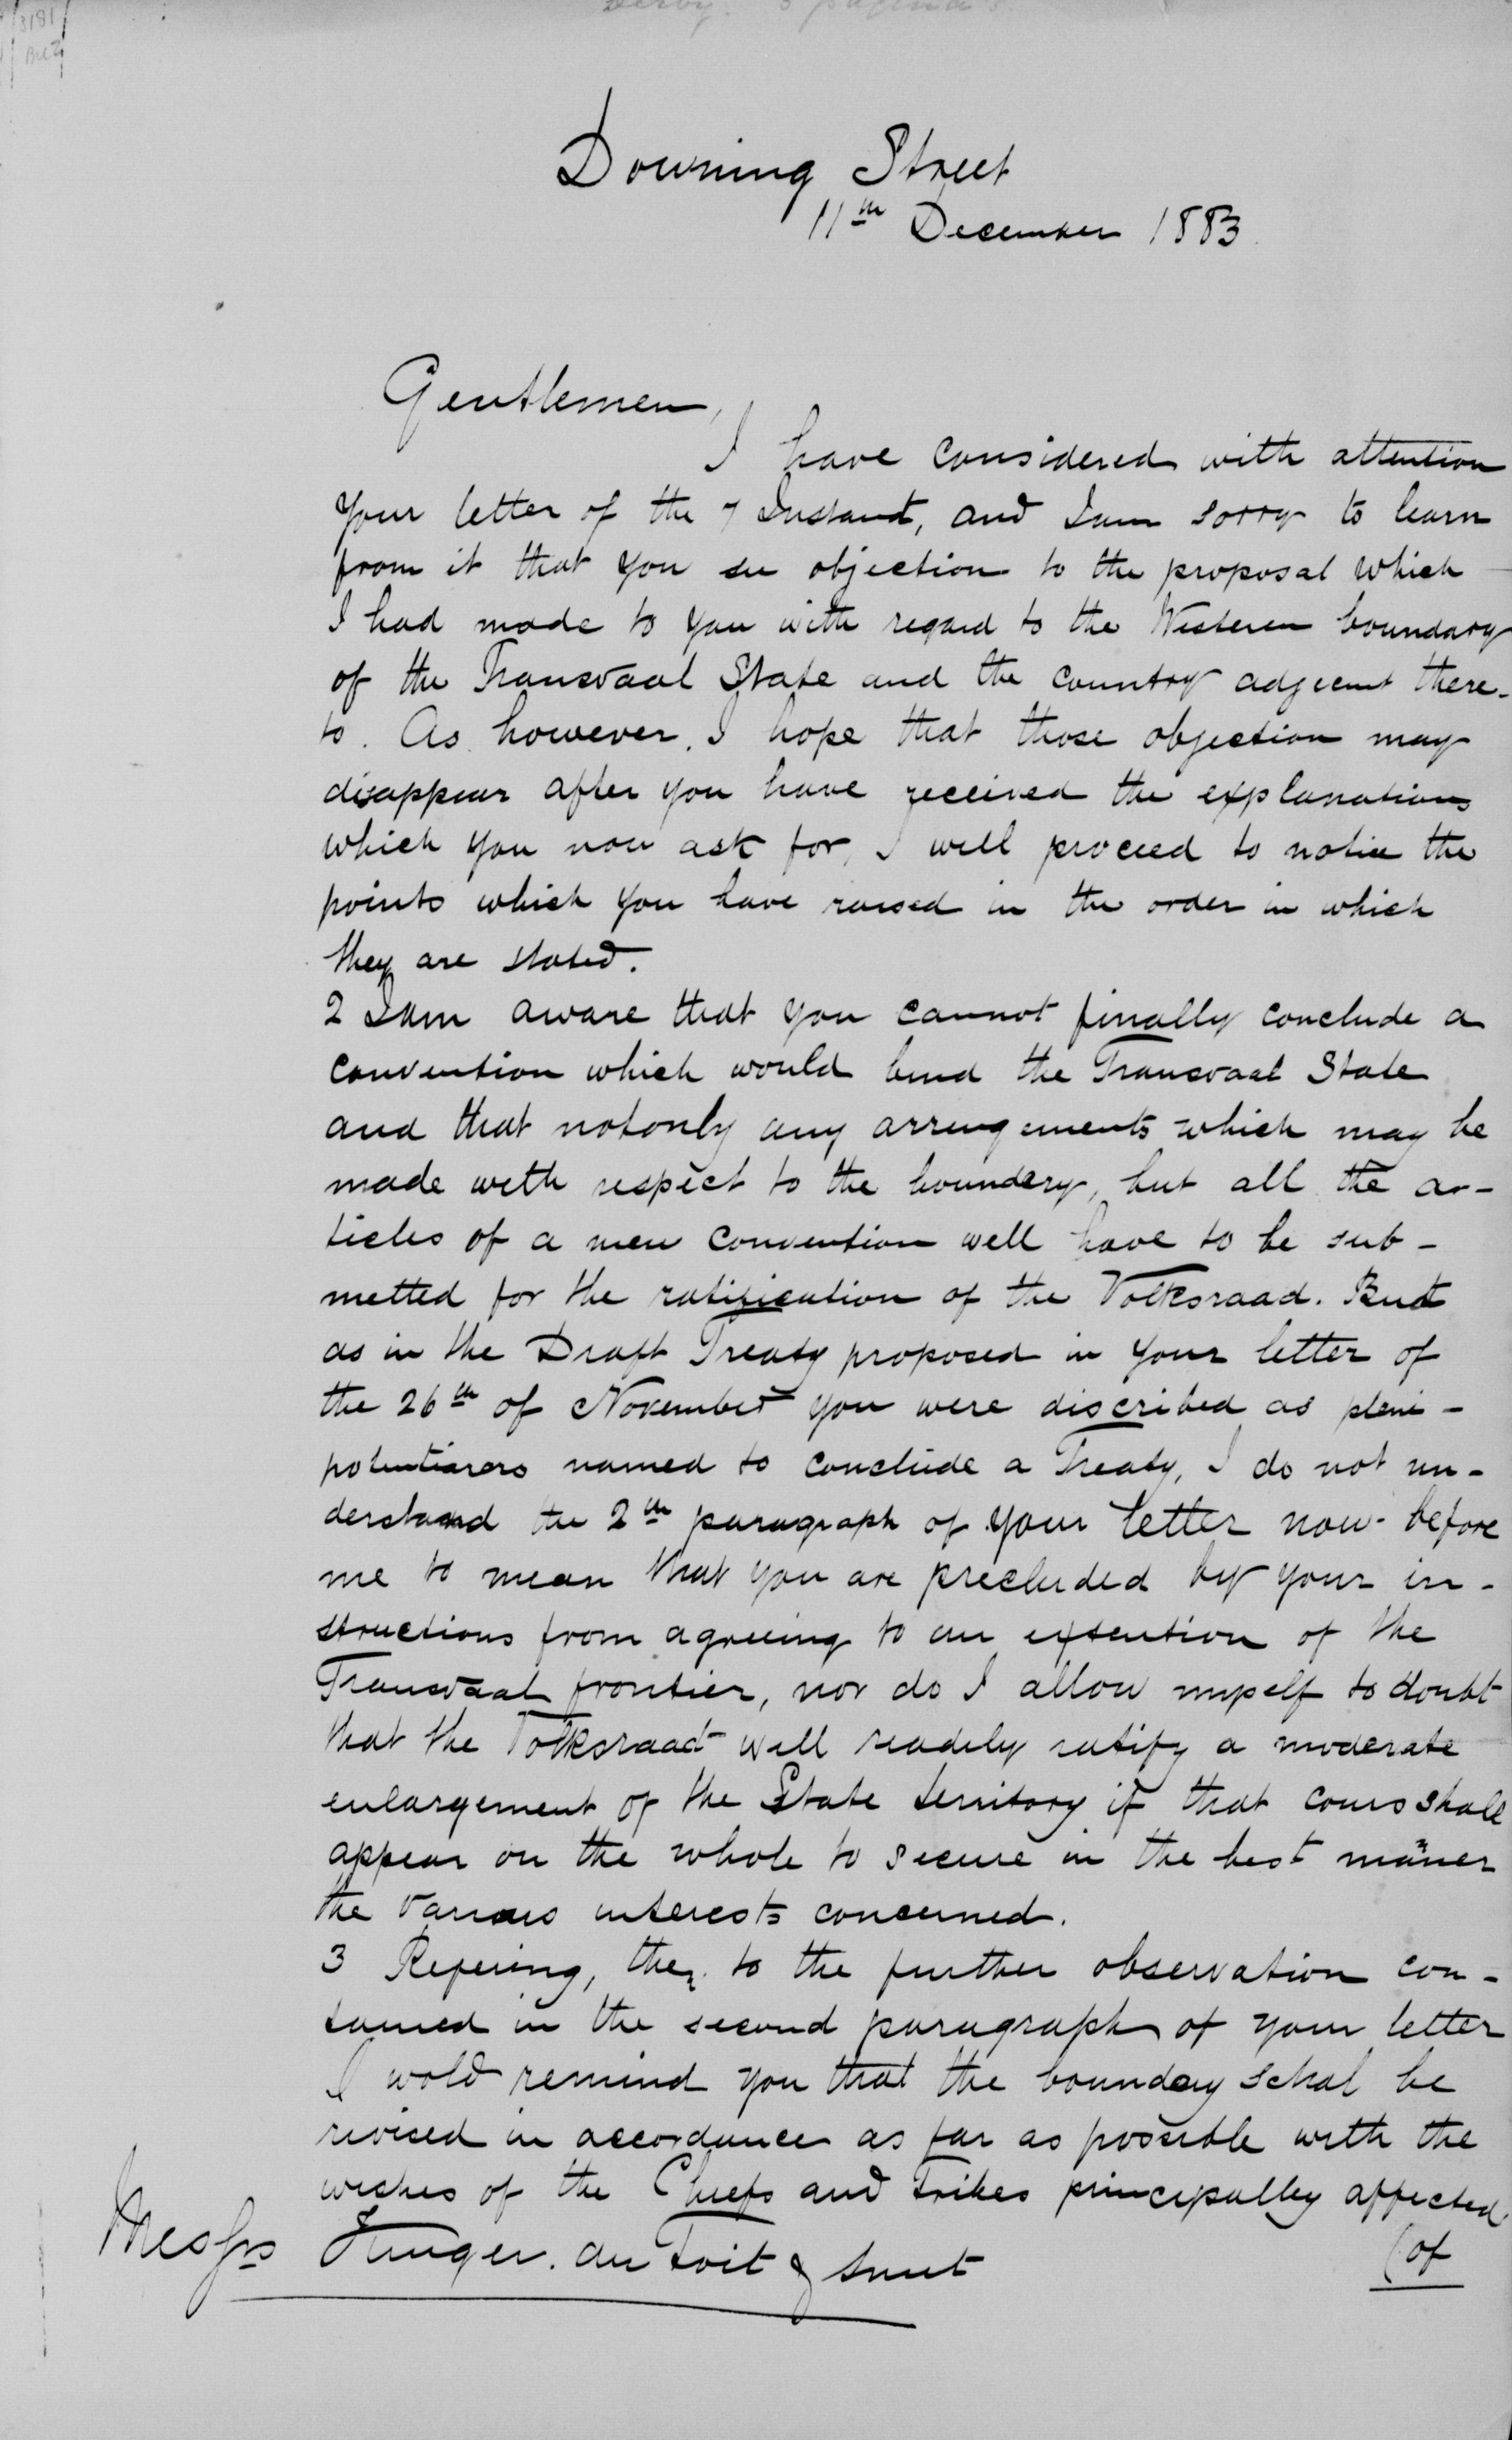 Derby. 3 pagina's
3181
Downing Street
11th December 1883.
Gentlemen,
I have considered with attention
your letter of the 7 Instant, and I am sorry to learn
from it that you see objection to the proposal which
I had made to you with regard to the Western boundary
of the Transvaal State and the country adjecent there-
to. As however, I hope that those objection may
disappear after you have received the explanations
which you now ask for, I will proceed to notice the
points which you have raised in the order in which
they are stated.
2 I am aware that you cannot finally conclude a
convention which would bind the Transvaal State
and that notonly any arrengements which may be
made with respect to the boundery, but all the ar-
ticles of a new convention well have to be sub-
metted for the ratification of the Volksraad. But
as in the Draft Treaty proposed in your letter of
the 26th of November you were discribed as pleni-
potentiarers named to conclude a Treaty, I do not un-
derstand the 2th paragraph of your letter now before
me to mean that you are precluded by your in-
structions from agreeing to an extention of the
Transvaal frontier, nor do I allow myself to doubt
that the Volksraad will readily ratify a moderate
enlargement of the State territory if that cours shall
appear on the whole to secure in the best mañer
the various interests concerned.
3 Refering, then to the further observation con-
tained in the second paragraph of your letter
I wold remind you that the boundey schal be
revised in accordance as far as possible with the
wishes of the Chiefs and Tribes principally affected
(of
Messrs Kruger. du Toit & Smit